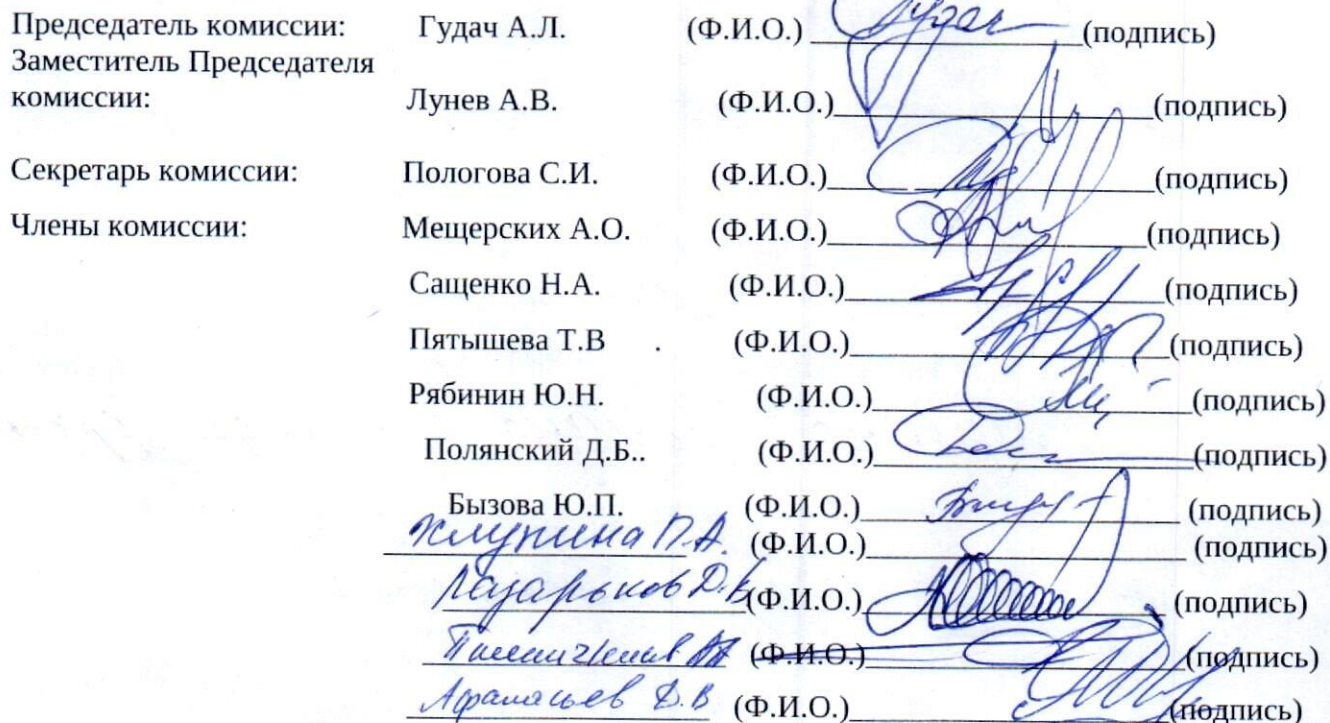 Председатель комиссии: Гудач А.Л. (Ф.И.О.) Гудач (подпись)
Заместитель Председателя
комиссии: Лунев А.В. (Ф.И.О.) (подпись)
Секретарь комиссии: Пологова С.И. (Ф.И.О.) (подпись)
Члены комиссии: Мещерских А.О. (Ф.И.О.) (подпись)
Сащенко Н.А. (Ф.И.О.) (подпись)
Пятышева Т.В . (Ф.И.О.) (подпись)
Рябинин Ю.Н. (Ф.И.О.) (подпись)
Полянский Д.Б.. (Ф.И.О.) (подпись)
Бызова Ю.П. (Ф.И.О.) (подпись)
Хлупина П.А. (Ф.И.О.) (подпись)
Лазарьков Д. (Ф.И.О.) (подпись)
(Ф.И.О.) (подпись)
Афанасьев Д.В (Ф.И.О.) (подпись)